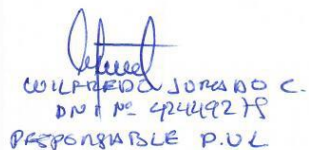 WILFREDO JURADO C.
DNI Nº 42449278
RESPONSABLE P.VL